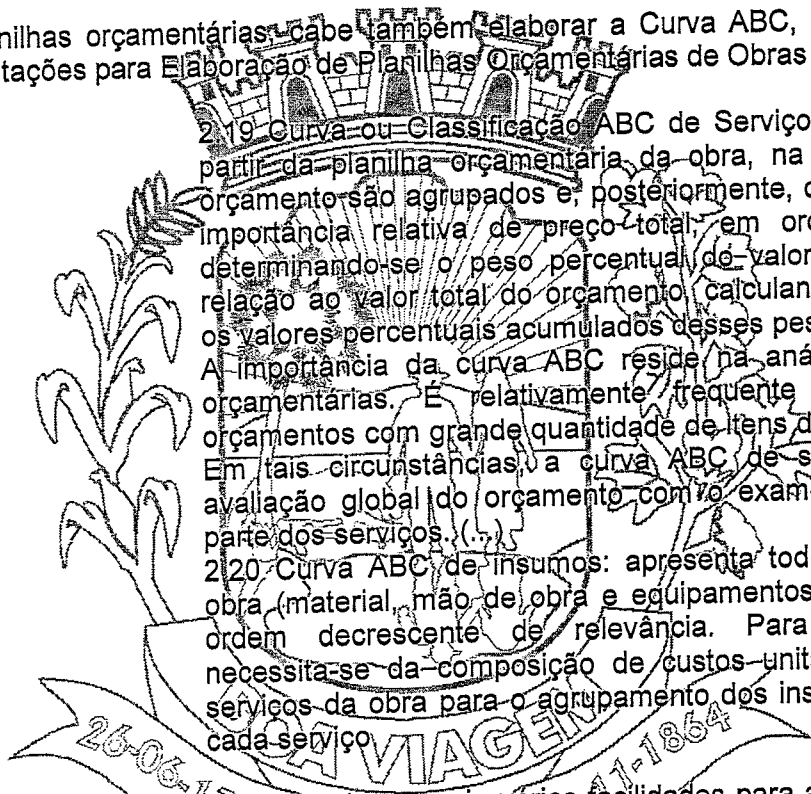 nilhas orçamentárias, cabe também elaborar a Curva ABC,
tações para Elaboração de Planilhas Orçamentárias de Obras
2.19 Curva ou Classificação ABC de Serviço
partir da planilha orçamentária da obra, na
orçamento são agrupados e, posteriormente, o
importância relativa de preço total, em ord
determinando-se o peso percentual do valor
relação ao valor total do orçamento, calculan
os valores percentuais acumulados desses pes
A importância da curva ABC reside na aná
orçamentárias. É relativamente frequente
orçamentos com grande quantidade de itens d
Em tais circunstâncias, a curva ABC de s
avaliação global do orçamento com o exam
parte dos serviços. (...)
2.20 Curva ABC de insumos: apresenta tod
obra (material, mão de obra e equipamentos
ordem decrescente de relevância. Para
necessita-se da composição de custos unit
serviços da obra para o agrupamento dos ins
cada serviço
OA VIAGEM
26-06-1
11-1864
facilidades para a